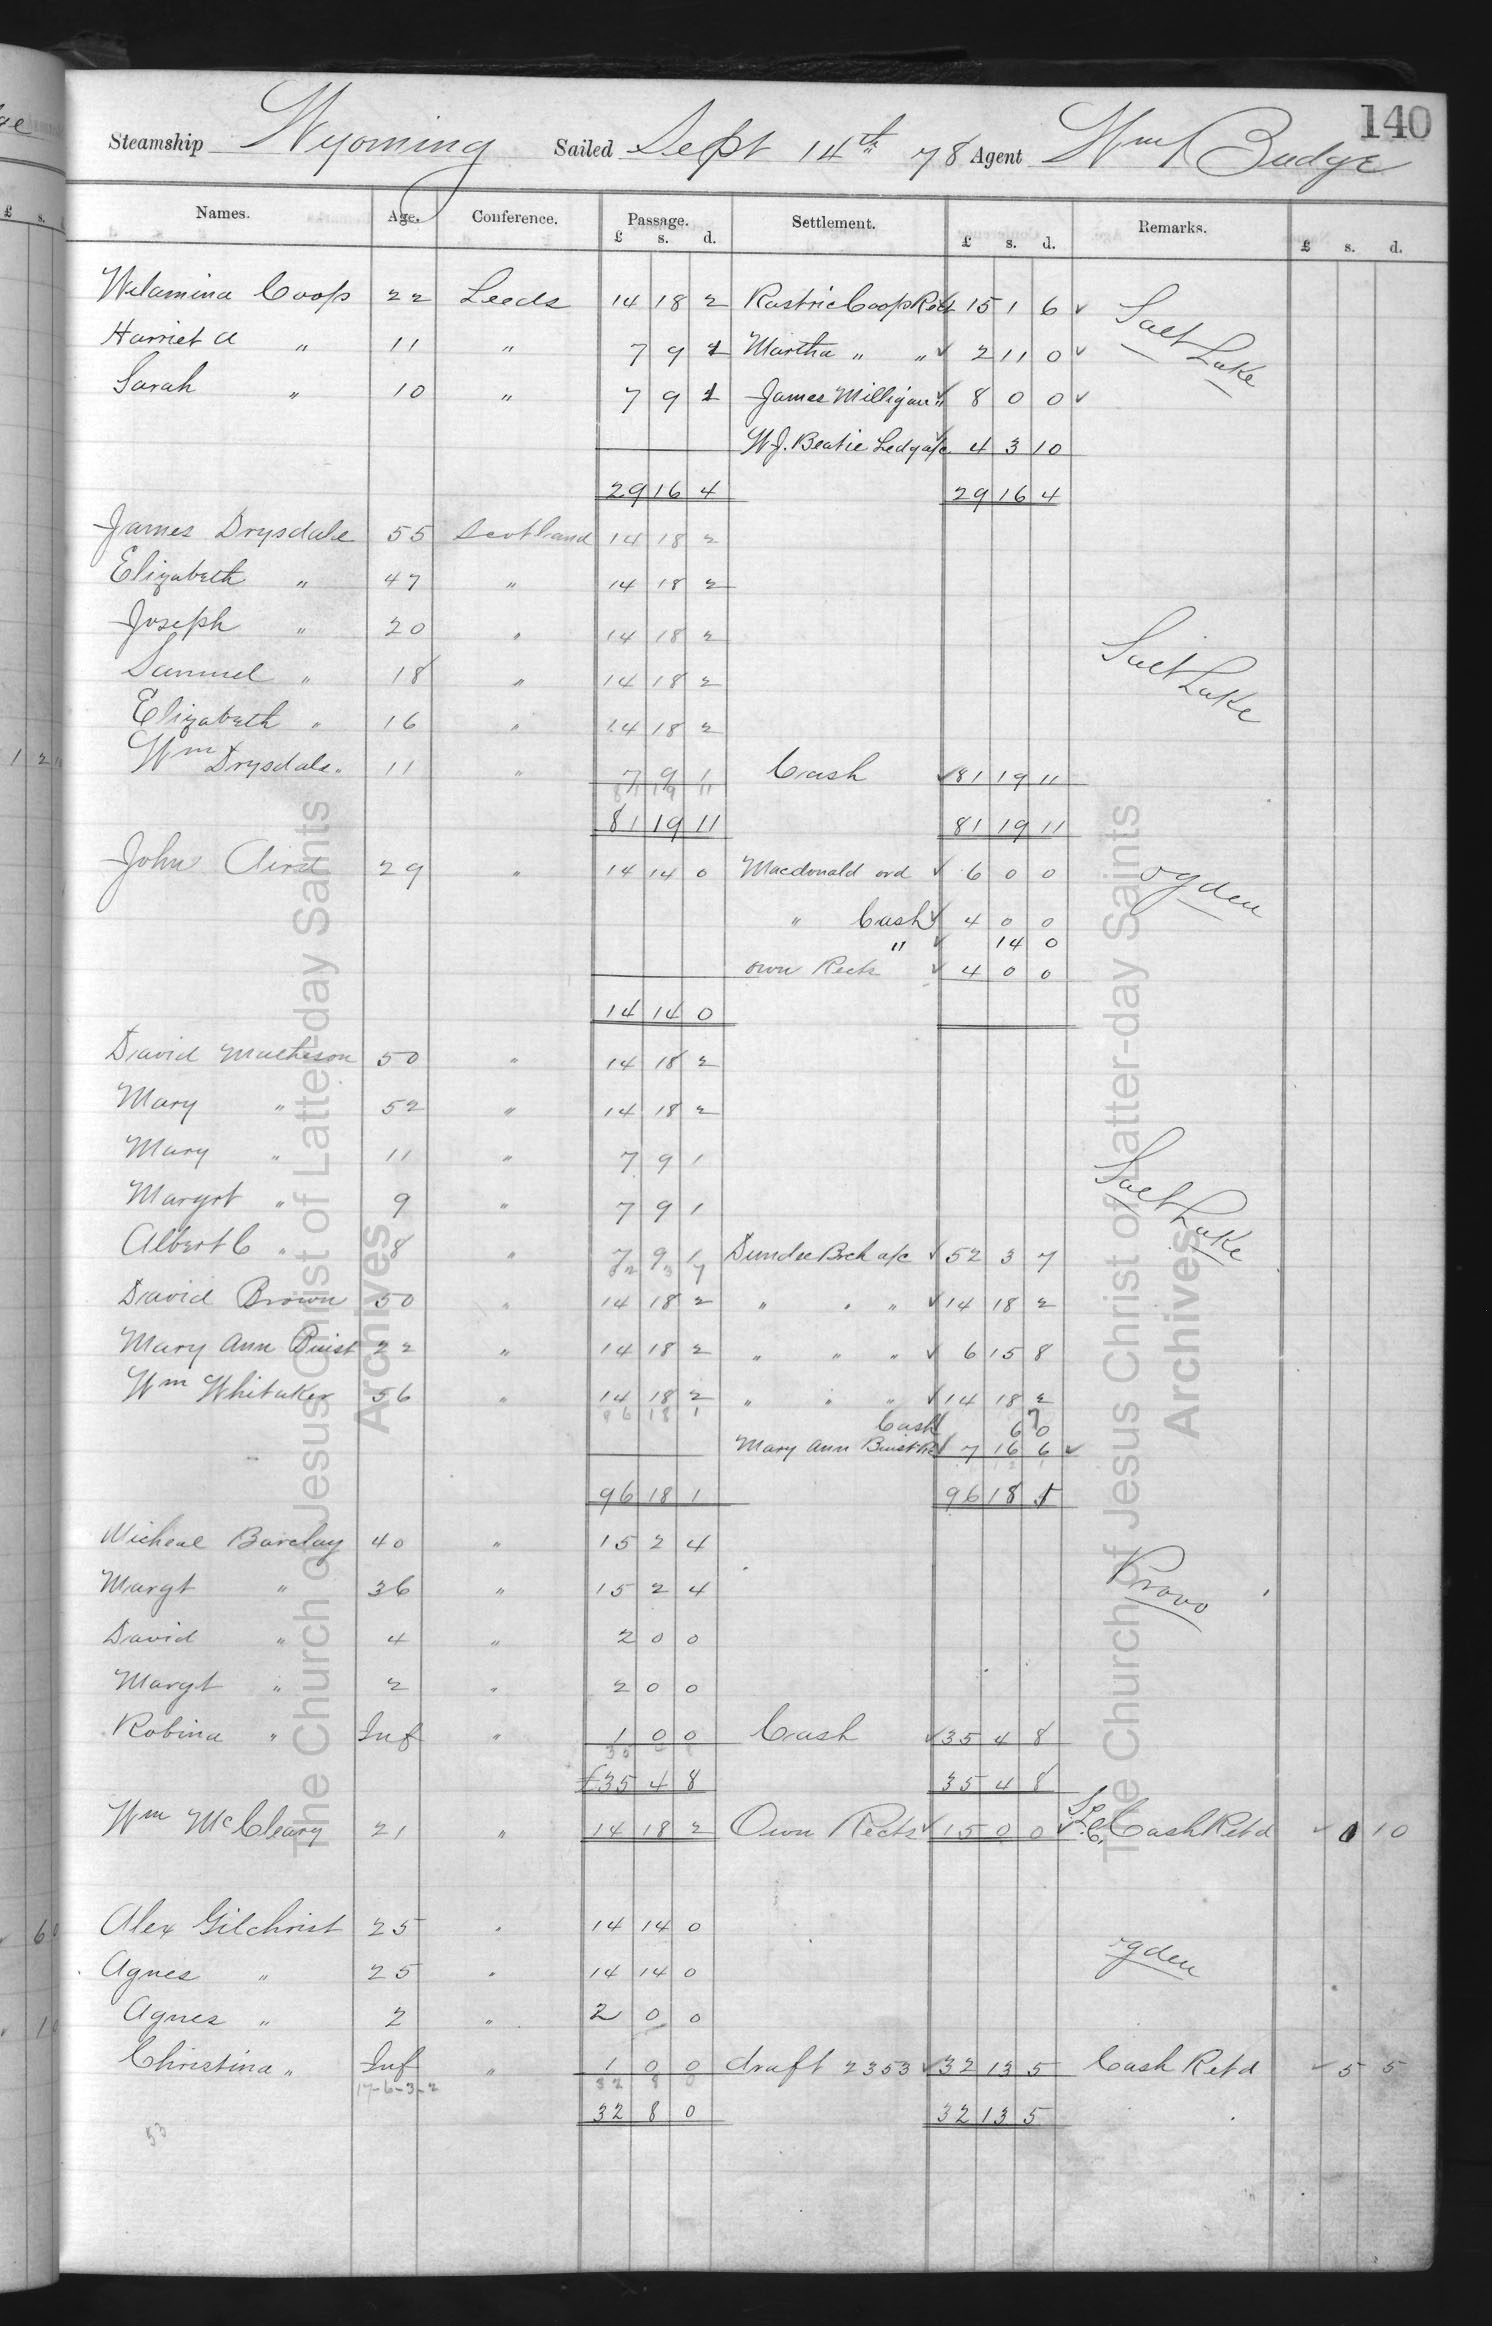 140
Steamship Wyoming Sailed Sept 14th 78 Agent Wm Budge
Names. Age. Conference. Passage. Settlement. Remarks.
£ s. d. £ s. d. £ s. d.
Wilamina Coop 22 Leeds 14 18 2 Rastric Coop Rect 15 1 6 Salt Lake
Harriet A " 11 " 7 9 1 Martha " " 2 11 0
Sarah " 10 " 7 9 1 James Milligan " 8 0 0
W J. Beatie Ledg a/c 4 3 10
29 16 4 29 16 4
James Drysdale 55 Scotland 14 18 2
Elizabeth " 47 " 14 18 2
Joseph " 20 " 14 18 2 Salt Lake
Samuel " 18 " 14 18 2
Elizabeth " 16 " 14 18 2
Wm Drysdale " 11 " 7 9 1 Cash 81 19 11
81 19 11
81 19 11 81 19 11
John Aird 29 " 14 14 0 Macdonald ord 6 0 0 Ogden
" Cash 4 0 0
" 14 0
own Rects 4 0 0
14 14 0
David Matheson 50 " 14 18 2
Mary " 52 " 14 18 2
Mary " 11 " 7 9 1 Salt Lake
Margrt " 9 " 7 9 1
Albert C " 8 " 7 9 1 Dundee Brch a/c 52 3 7
52 3 7
David Brown 50 " 14 18 2 " " " 14 18 2
Mary Ann Buist 22 " 14 18 2 " " " 6 15 8
Wm Whitaker 56 " 14 18 2 " " " 14 18 2
96 18 1 Cash 6 0
Mary Ann Buist 7 16 6
96 18 1 96 18 1
Micheal Barclay 40 " 15 2 4 Provo
Margt " 36 " 15 2 4
David " 4 " 2 0 0
Margt " 2 " 2 0 0
Robina " Inf " 1 0 0 Cash 35 4 8
£35 4 8 35 4 8
Wm McCleary 21 " 14 18 2 Own Rects 15 0 0 S.L.C. Cash Retd 1 10
Alex Gilchrist 25 " 14 14 0 Ogden
Agnes " 25 " 14 14 0
Agnes " 2 " 2 0 0
Christina " Inf " 1 0 0 draft 2353 32 13 5 Cash Retd 5 5
17-6-3-2 32 8 0
32 8 0 32 13 5
53
The Church of Jesus Christ of Latter-day Saints
Archives
The Church of Jesus Christ of Latter-day Saints
Archives